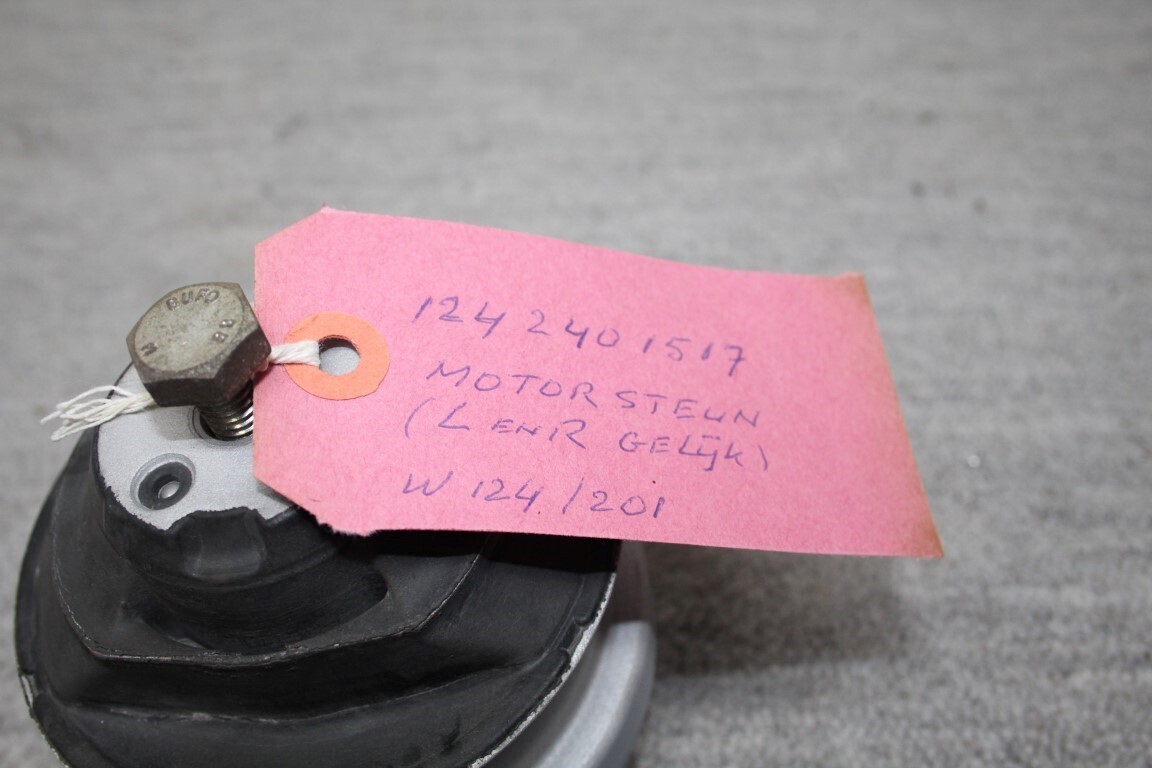 BUFO
8.8
M
124 240 1517
MOTOR STEUN
(L EN R GELIJK)
W 124 / 201